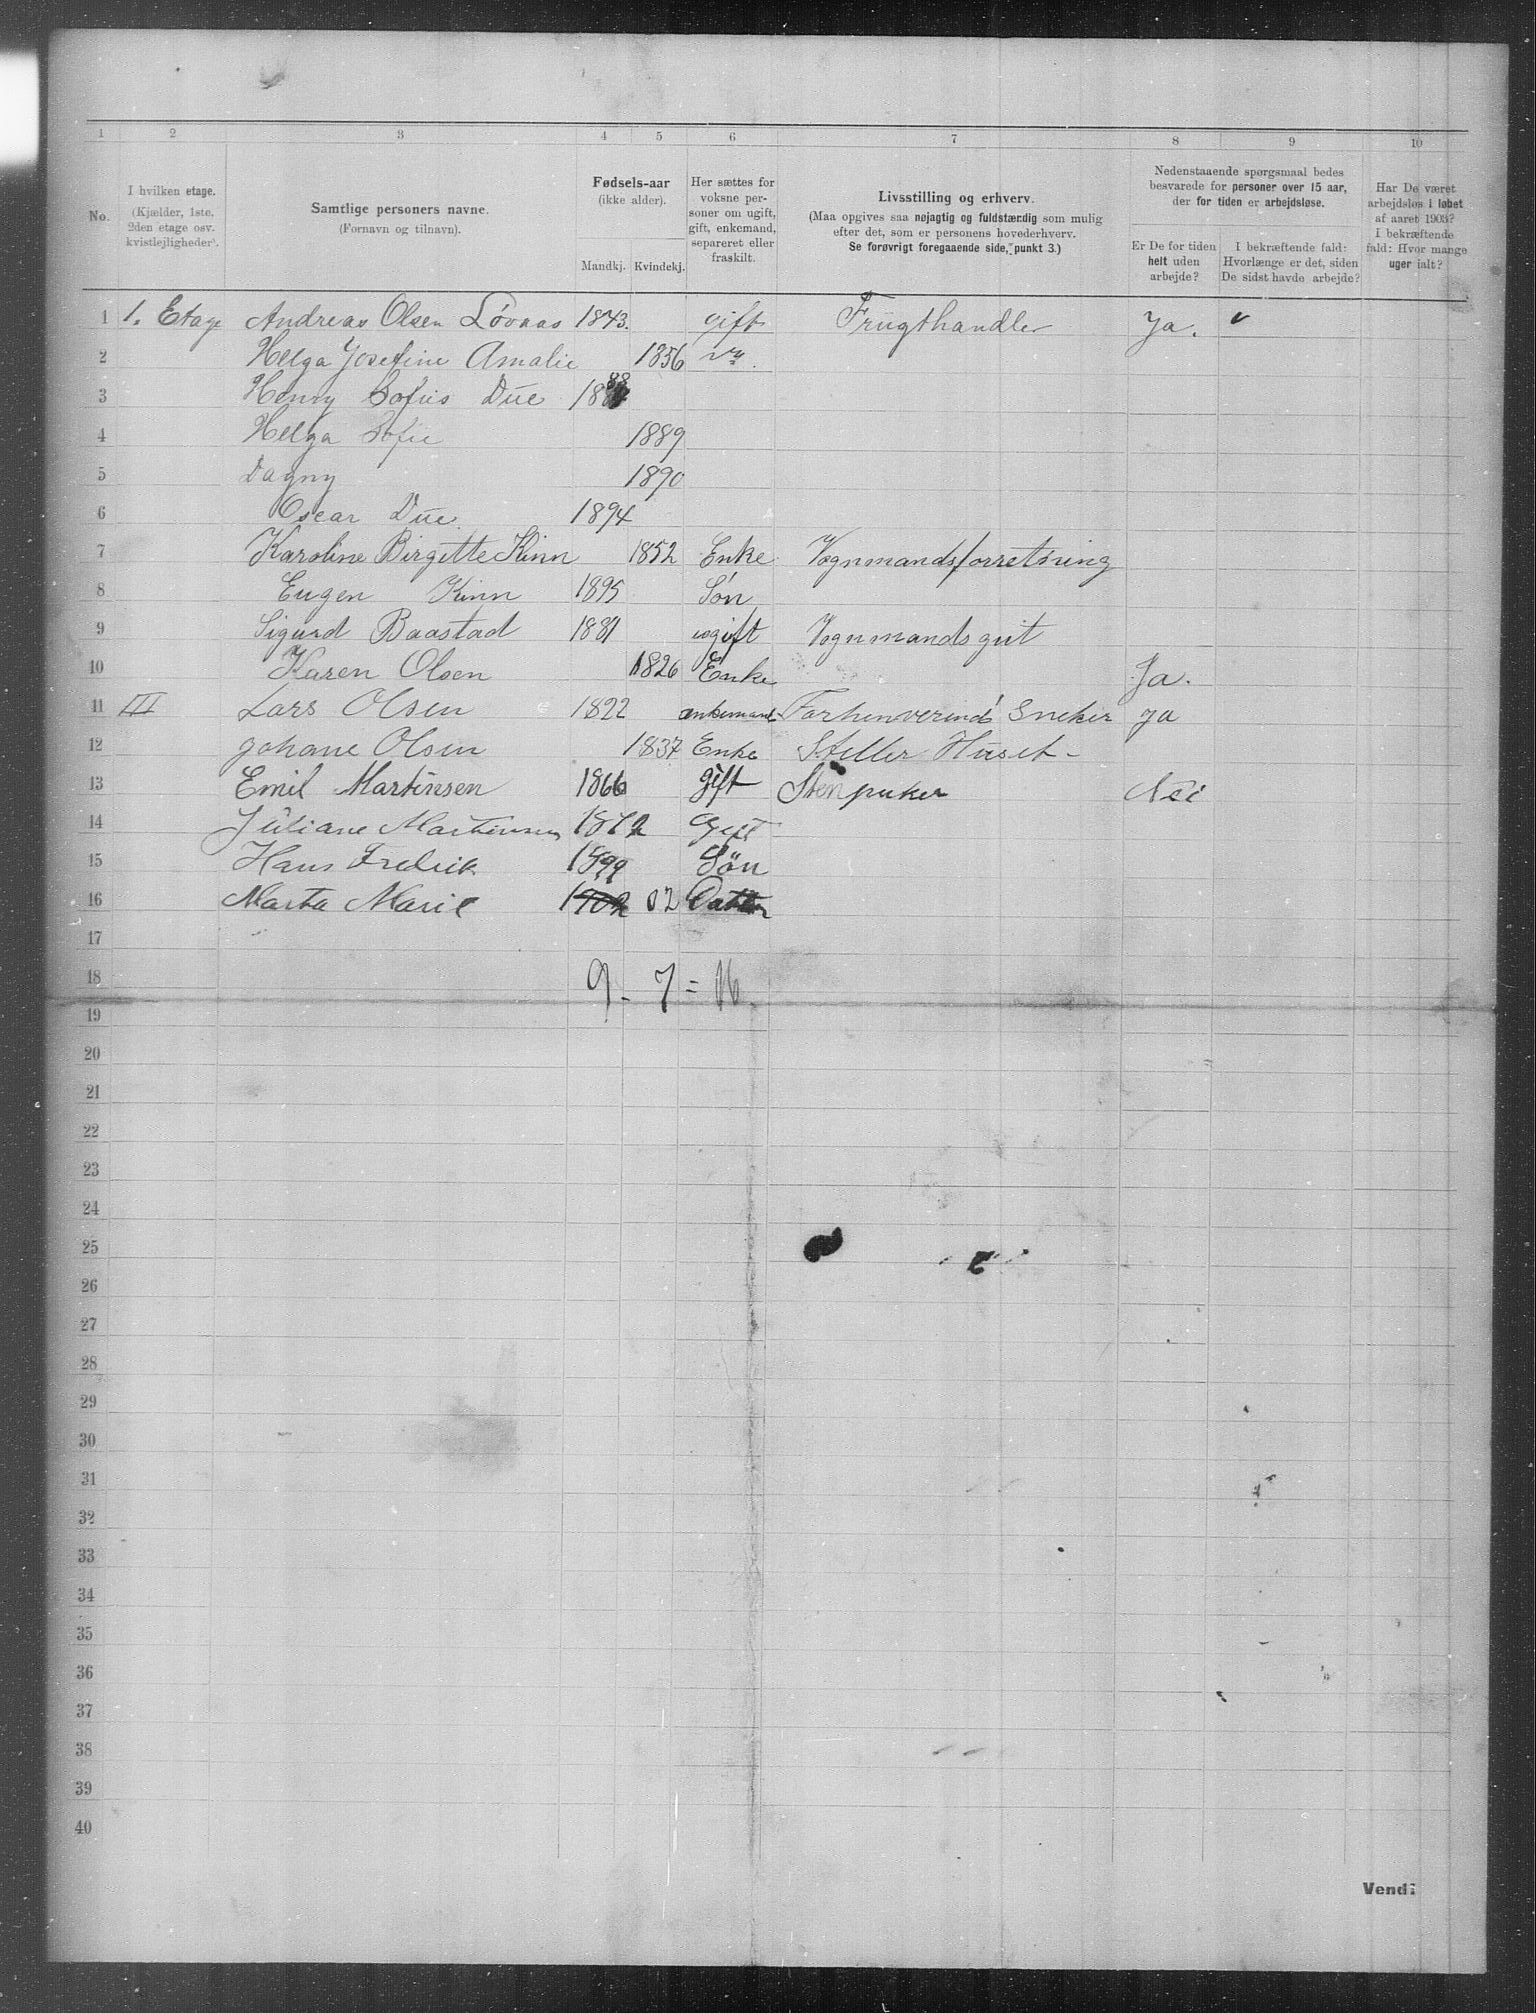 1 2 3 4 5 6 7 8 9 10
No.
I hvilken etage.
(Kjælder, 1ste,
2den etage osv.
kvistlejligheder).
Samtlige personers navne.
(Fornavn og tilnavn).
Fødsels-aar
(ikke alder).
Mandkj. Kvindekj.
Her sættes for
voksne per-
soner om ugift,
gift, enkemand,
separeret eller
fraskilt.
Livsstilling og erhverv.
(Maa opgives saa nøjagtig og fuldstærdig som mulig
efter det, som er personens hovederhverv.
Se forøvrigt foregaaende side, punkt 3.)
Nedenstaaende spørgsmaal bedes
besvarede for personer over 15 aar,
der for tiden er arbejdsløse.
Er De for tiden
helt uden
arbejde?
I bekræftende fald:
Hvorlænge er det, siden
De sidst havde arbejde?
Har De været
arbejdsløs i løbet
af aaret 1903?
I bekræftende
fald: Hvor mange
uger ialt?
1 1. Etage Andreas Olsen Lövaas 1843. gift Frugthandler Ja.
2 Helga Josefine Amalie 1856
3 Henny Sofus Due 1888
4 Helga Sofie 1889
5 Dagny 1890
6 Oscar Due 1894
7 Karoline Birgitte Kinn 1852 Enke Vognmandsforretning
8 Eugen Kinn 1895 Sön
9 Sigurd Baastad 1881 ugift Vognmandsgut
10 Karen Olsen 1826 Enke Ja.
11 III Lars Olsen 1822 enkemand Forhenverend Sneker Ja
12 Johane Olsen 1837 Enke Steller Huset
13 Emil Martinsen 1866 gift Stenpuker Nei
14 Juliane Martinsen 1872 Gift
15 Hans Fredrik 1899 Sön
16 Marta Marie 1902 02 Datter
17
18 9 - 7 = 16
19
20
21
22
23
24
25
26
27
28
29
30
31
32
33
34
35
36
37
38
39
40
Vend!